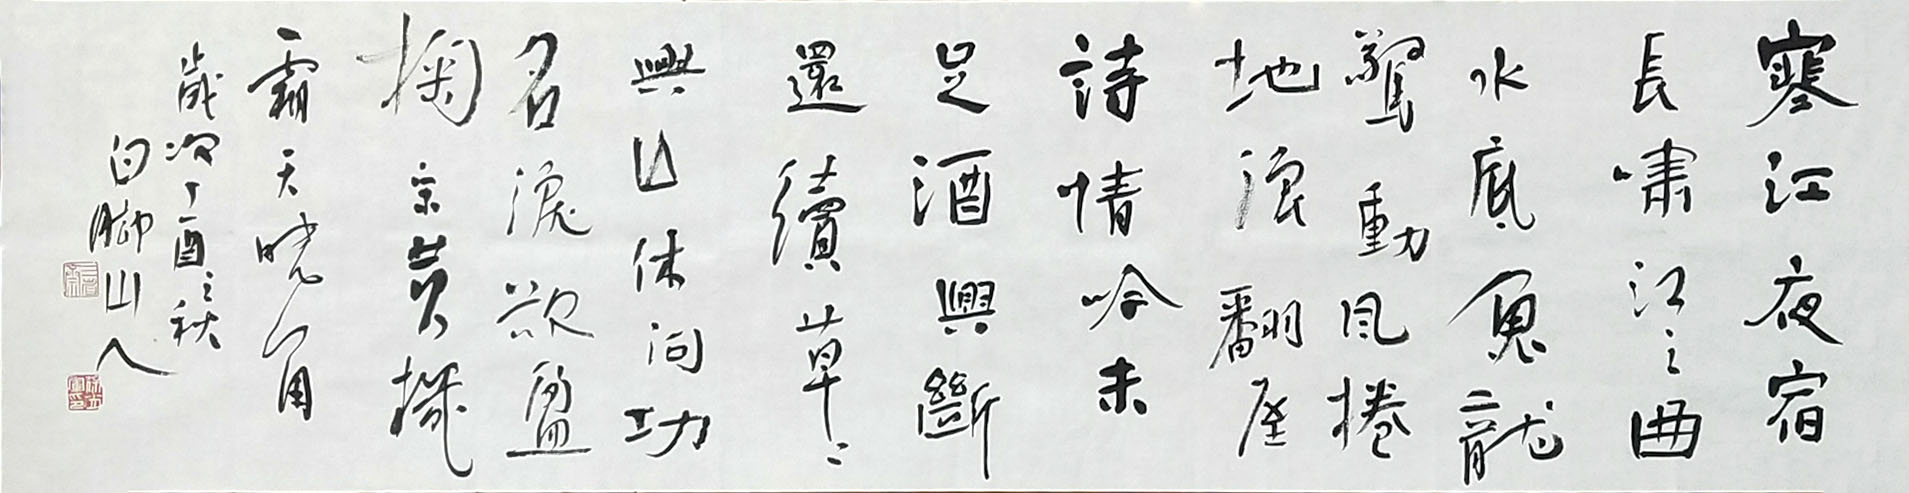 寒江夜宿
長啸江之曲
水底魚龍
驚動風捲
地浪翻屋
詩情吟未
足酒興斷
還續草〻
興亡休問功
名淚欲盈
掬 宋黃機
霜天曉角
歲次丁酉之秋
白腳山人